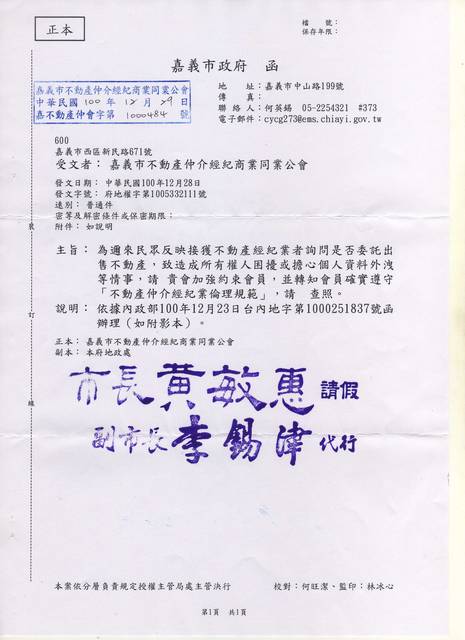 正本
檔　　號：
保存年限：
嘉義市政府　函
嘉義市不動產仲介經紀商業同業公會
中華民國 100 年 12 月 29 日
嘉不動產仲會字第 1000484 號
地　　址：嘉義市中山路199號
傳　　真：
聯 絡 人：何英錫　05-2254321　#373
電子郵件：cycg273@ems.chiayi.gov.tw
600
嘉義市西區新民路671號
受文者：　嘉義市不動產仲介經紀商業同業公會
發文日期：中華民國100年12月28日
發文字號：府地權字第1005332111號
速別：普通件
密等及解密條件或保密期限：
附件：如說明
主旨：為邇來民眾反映接獲不動產經紀業者詢問是否委託出
售不動產，致造成所有權人困擾或擔心個人資料外洩
等情事，請　貴會加強約束會員，並轉知會員確實遵守
「不動產仲介經紀業倫理規範」，請　查照。
說明：依據內政部100年12月23日台內地字第1000251837號函
辦理（如附影本）。
正本：嘉義市不動產仲介經紀商業同業公會
副本：本府地政處
市長黃敏惠請假
副市長李錫津代行
裝
訂
線
本案依分層負責規定授權主管局處主管決行
校對：何旺潔、監印：林冰心
第1頁　共1頁